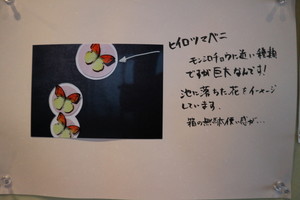 ヒイロツマベニ
モンシロチョウに近い種類
ですが巨大なんです!
池に落ちた花をイメージ
しています.
箱の無駄使い感が...